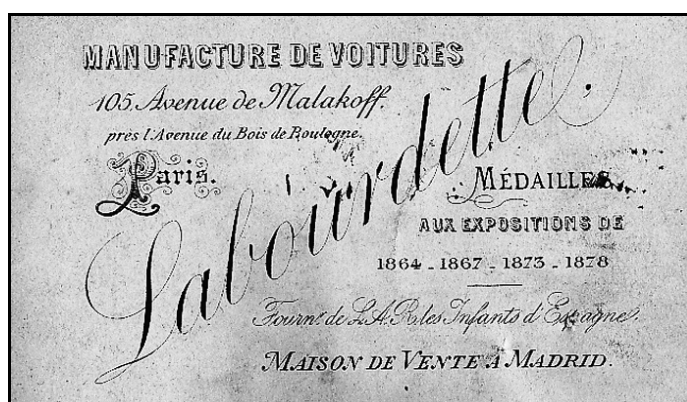 MANUFACTURE DE VOITURES
105 Avenue de Malakoff.
près l'Avenue du Bois de Boulogne.
Paris.
Labourdette,
MÉDAILLES
AUX EXPOSITIONS DE
1864 - 1867 - 1873 - 1878
Fournr. de L.A.R. les Infants d'Espagne.
MAISON DE VENTE À MADRID.